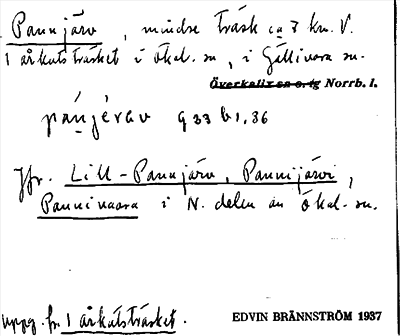 Pannjärv, mindre träsk ca 7 km. V.
l ärkatsträsket i Ökal. sn, i Gällivara sn.
Överkalix sn o. tg Norrb. l.
pánjérav 933 b1, 36
Jfr. Lill-Pannjärv, Pannijärvi,
Pannivaara i N. delen av Ökal. sn.
uppg. fr. l ärkatsträsket.
EDVIN BRÄNNSTRÖM 1937